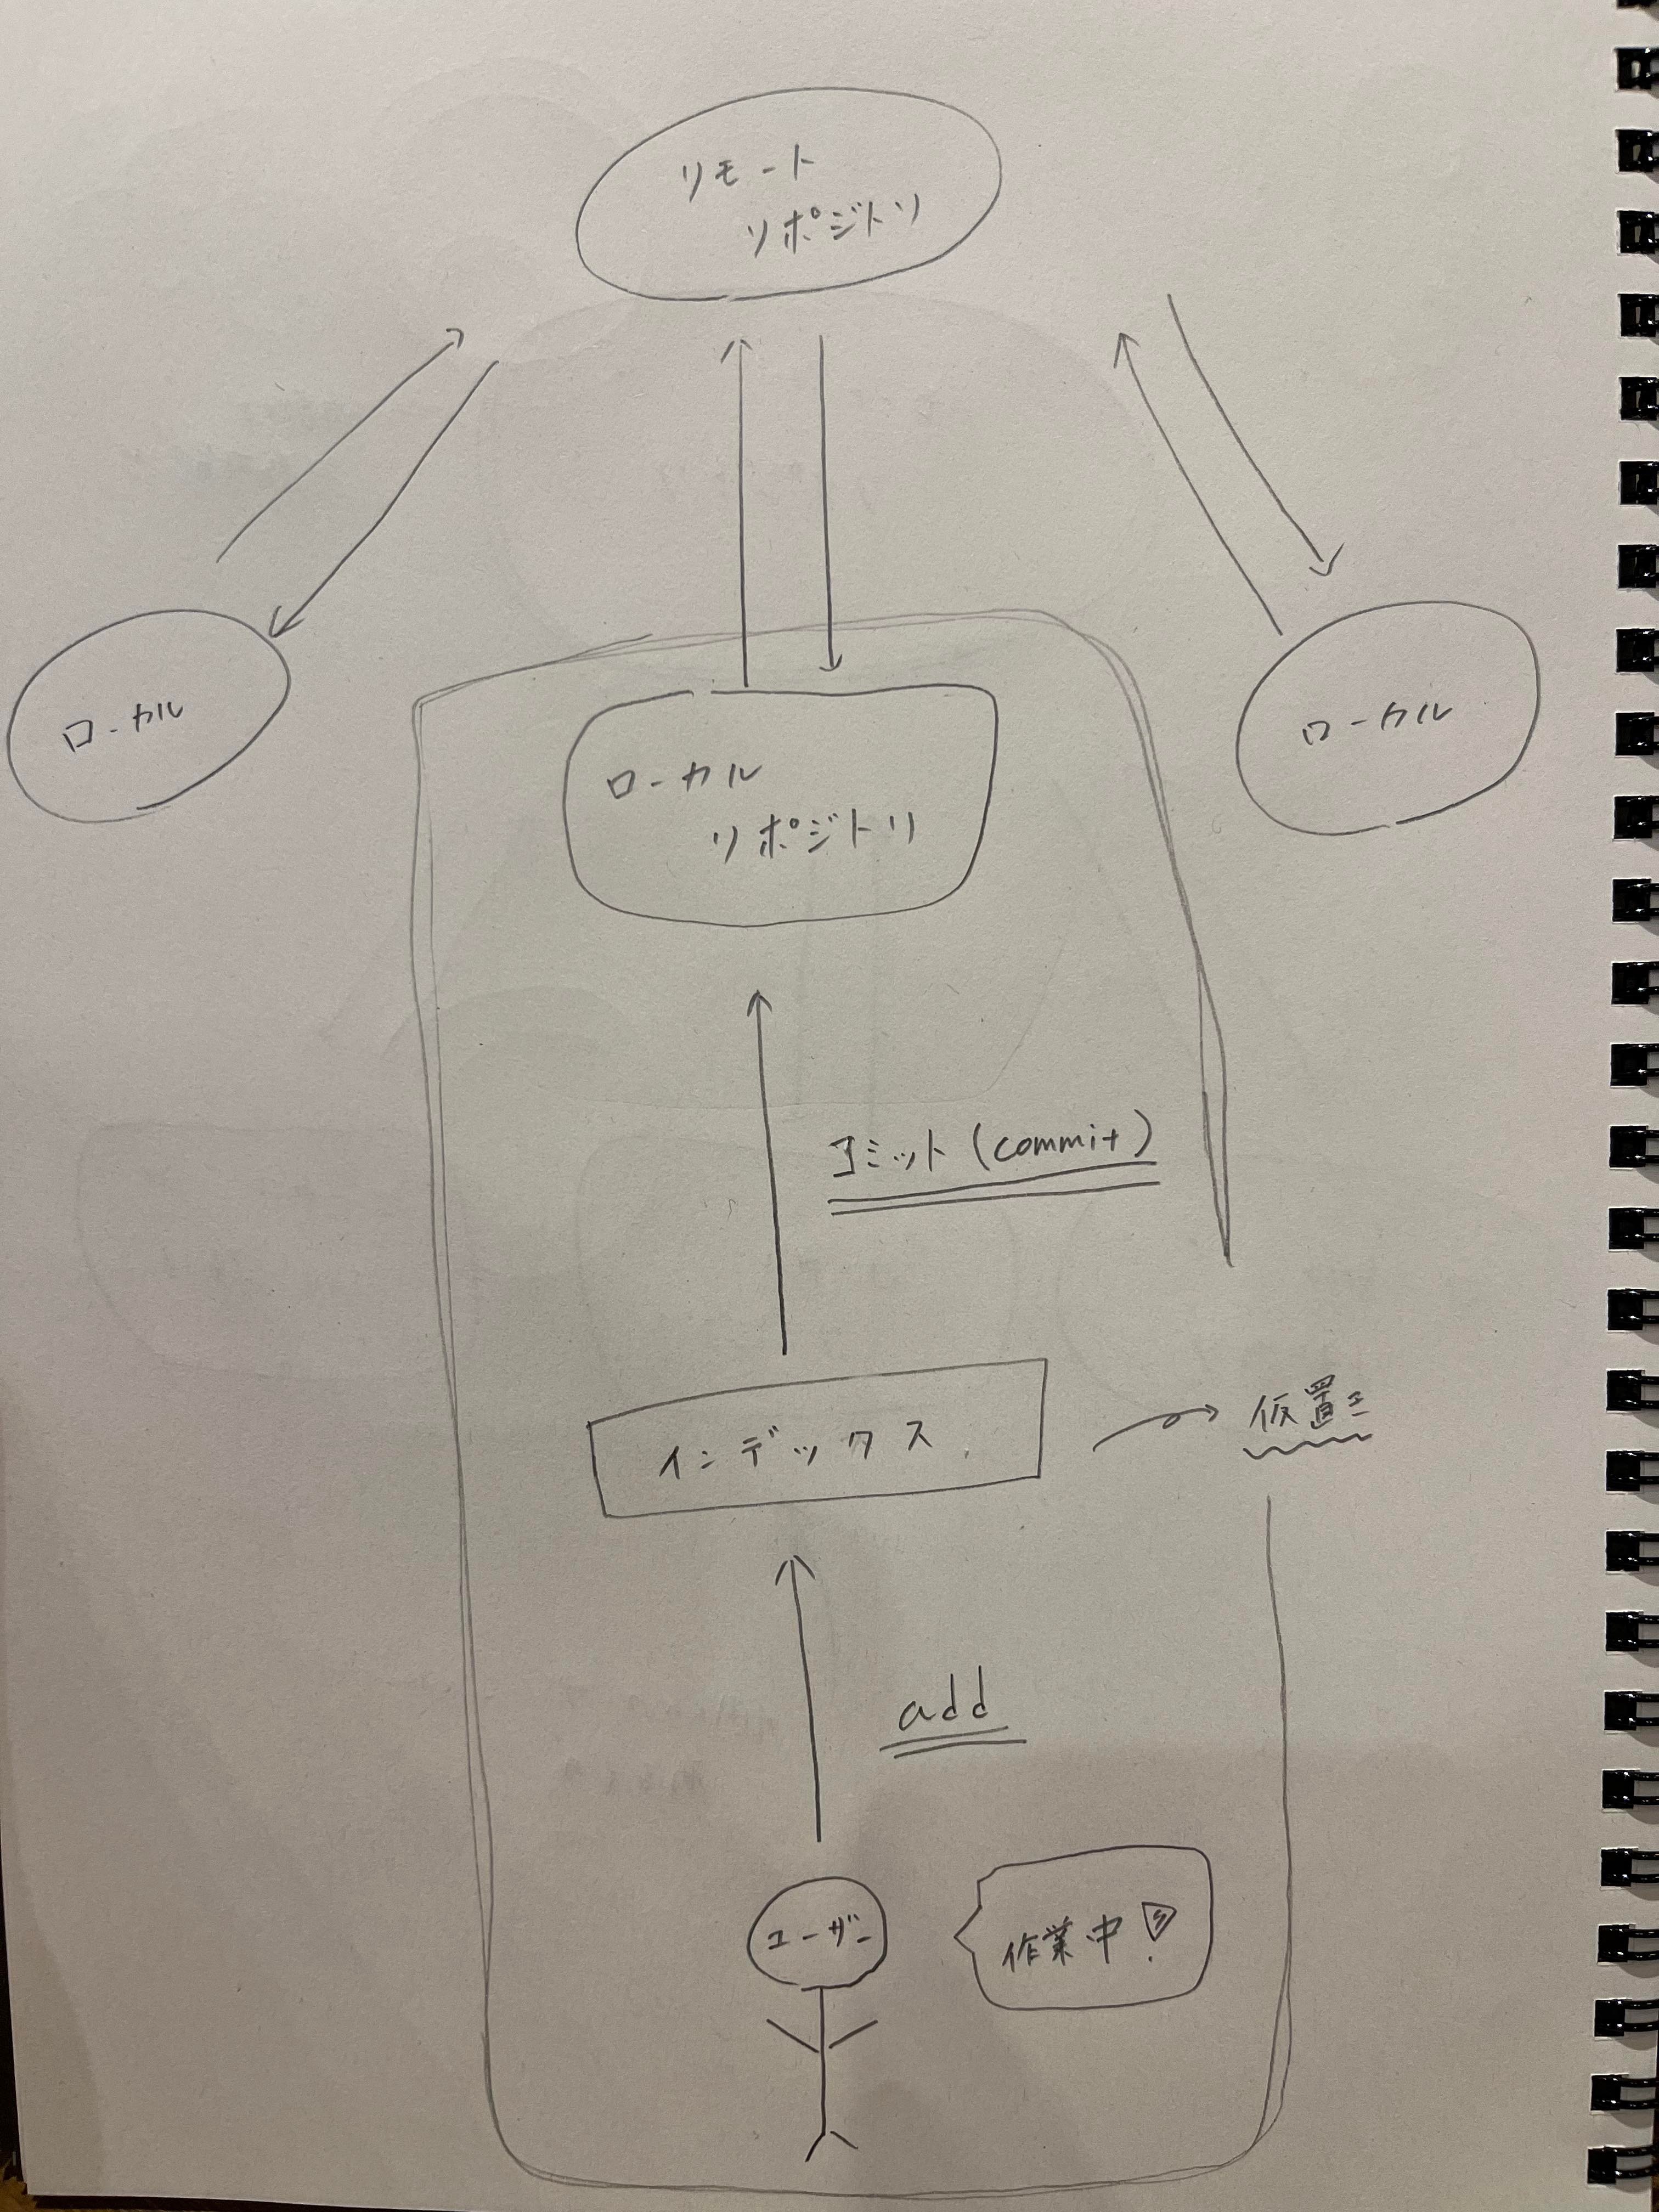 リモート
リポジトリ
ローカル
ローカル
リポジトリ
ローカル
コミット(commit)
インデックス
仮置き
add
ユーザー
作業中!